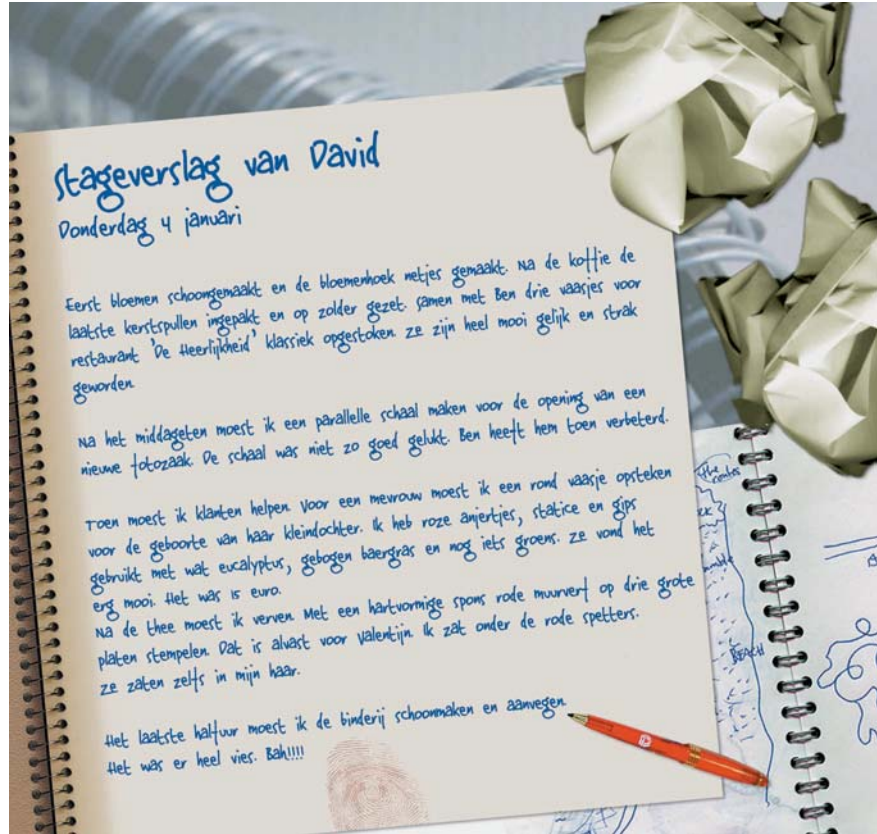 Stageverslag van David
Donderdag 4 januari
Eerst bloemen schoongemaakt en de bloemenhoek netjes gemaakt. Na de koffie de
laatste kerstspullen ingepakt en op zolder gezet. Samen met Ben drie vaasjes voor
restaurant 'De Heerlijkheid' klassiek opgestoken. Ze zijn heel mooi gelijk en strak
geworden.
Na het middageten moest ik een parallelle schaal maken voor de opening van een
nieuwe fotozaak. De schaal was niet zo goed gelukt. Ben heeft hem toen verbeterd.
Toen moest ik klanten helpen. Voor een mevrouw moest ik een rond vaasje opsteken
voor de geboorte van haar kleindochter. Ik heb roze anjertjes, statice en gips
gebruikt met wat eucalyptus, gebogen baergras en nog iets groens. Ze vond het
erg mooi. Het was 15 euro.
Na de thee moest ik verven. Met een hartvormige spons rode muurverf op drie grote
platen stempelen. Dat is alvast voor Valentijn. Ik zat onder de rode spetters.
Ze zaten zelfs in mijn haar.
Het laatste halfuur moest ik de binderij schoonmaken en aanvegen.
Het was er heel vies. Bah!!!!
The
BEACH